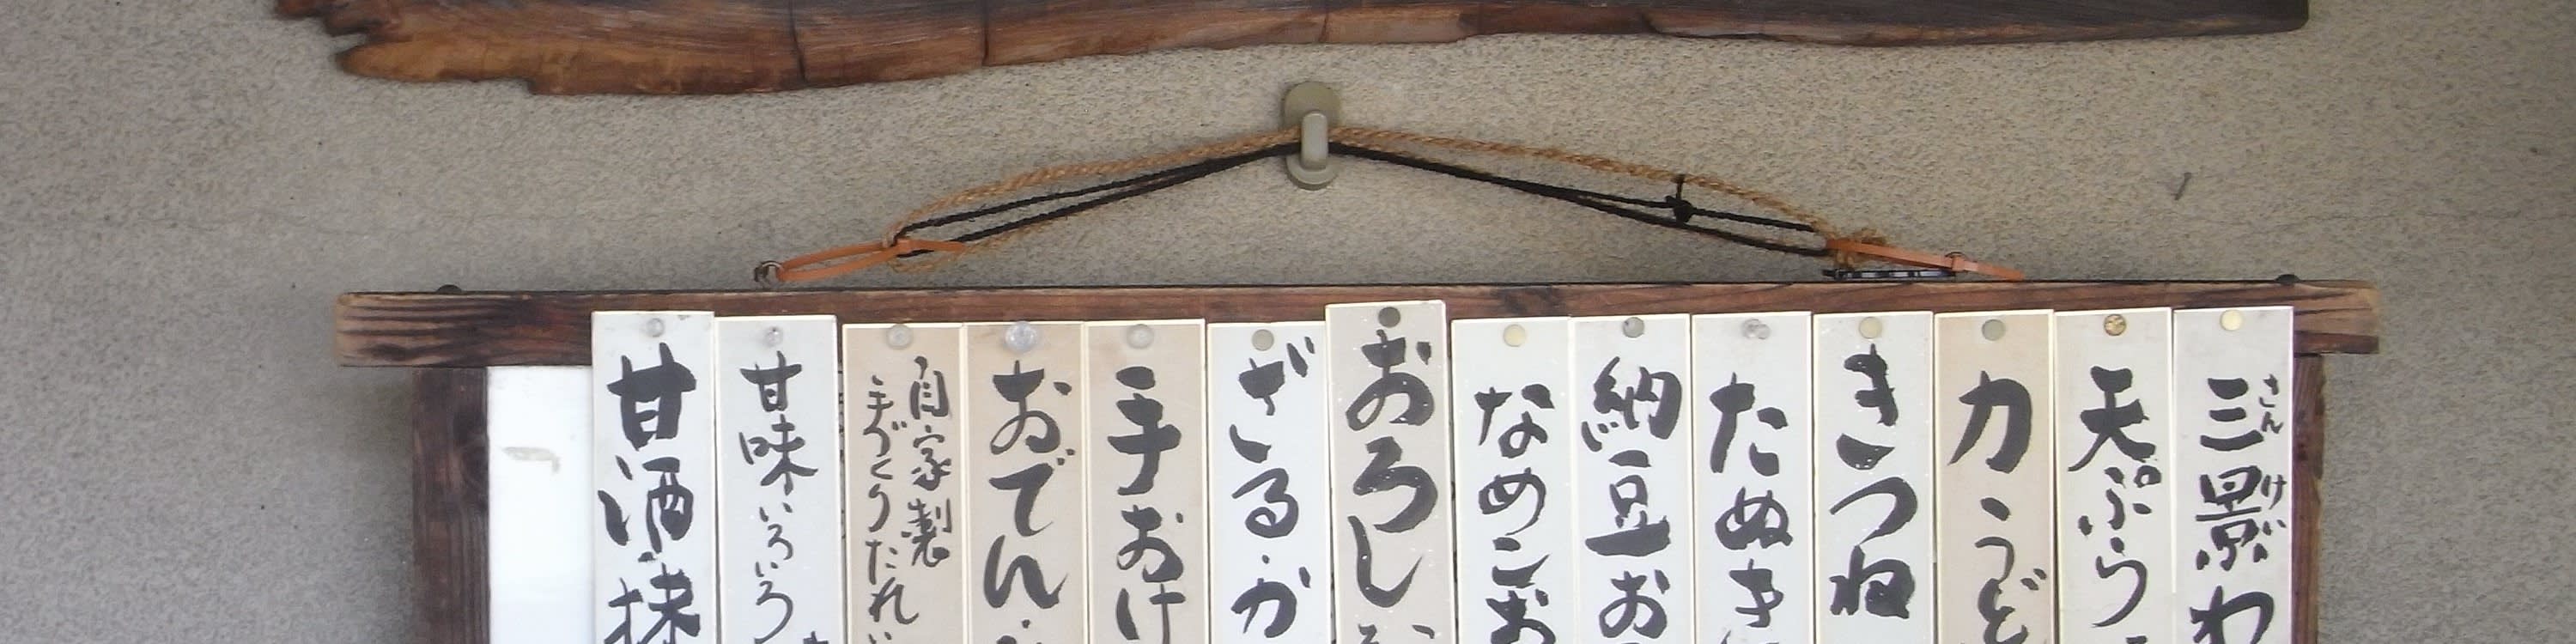 三景わ
さんけい
天ぷら
力うど
きつね
たぬき
納豆お
なめこお
おろし
ざる・か
手おけ
おでん
自家製
手づくりたれ
甘味いろいろ
甘酒・抹